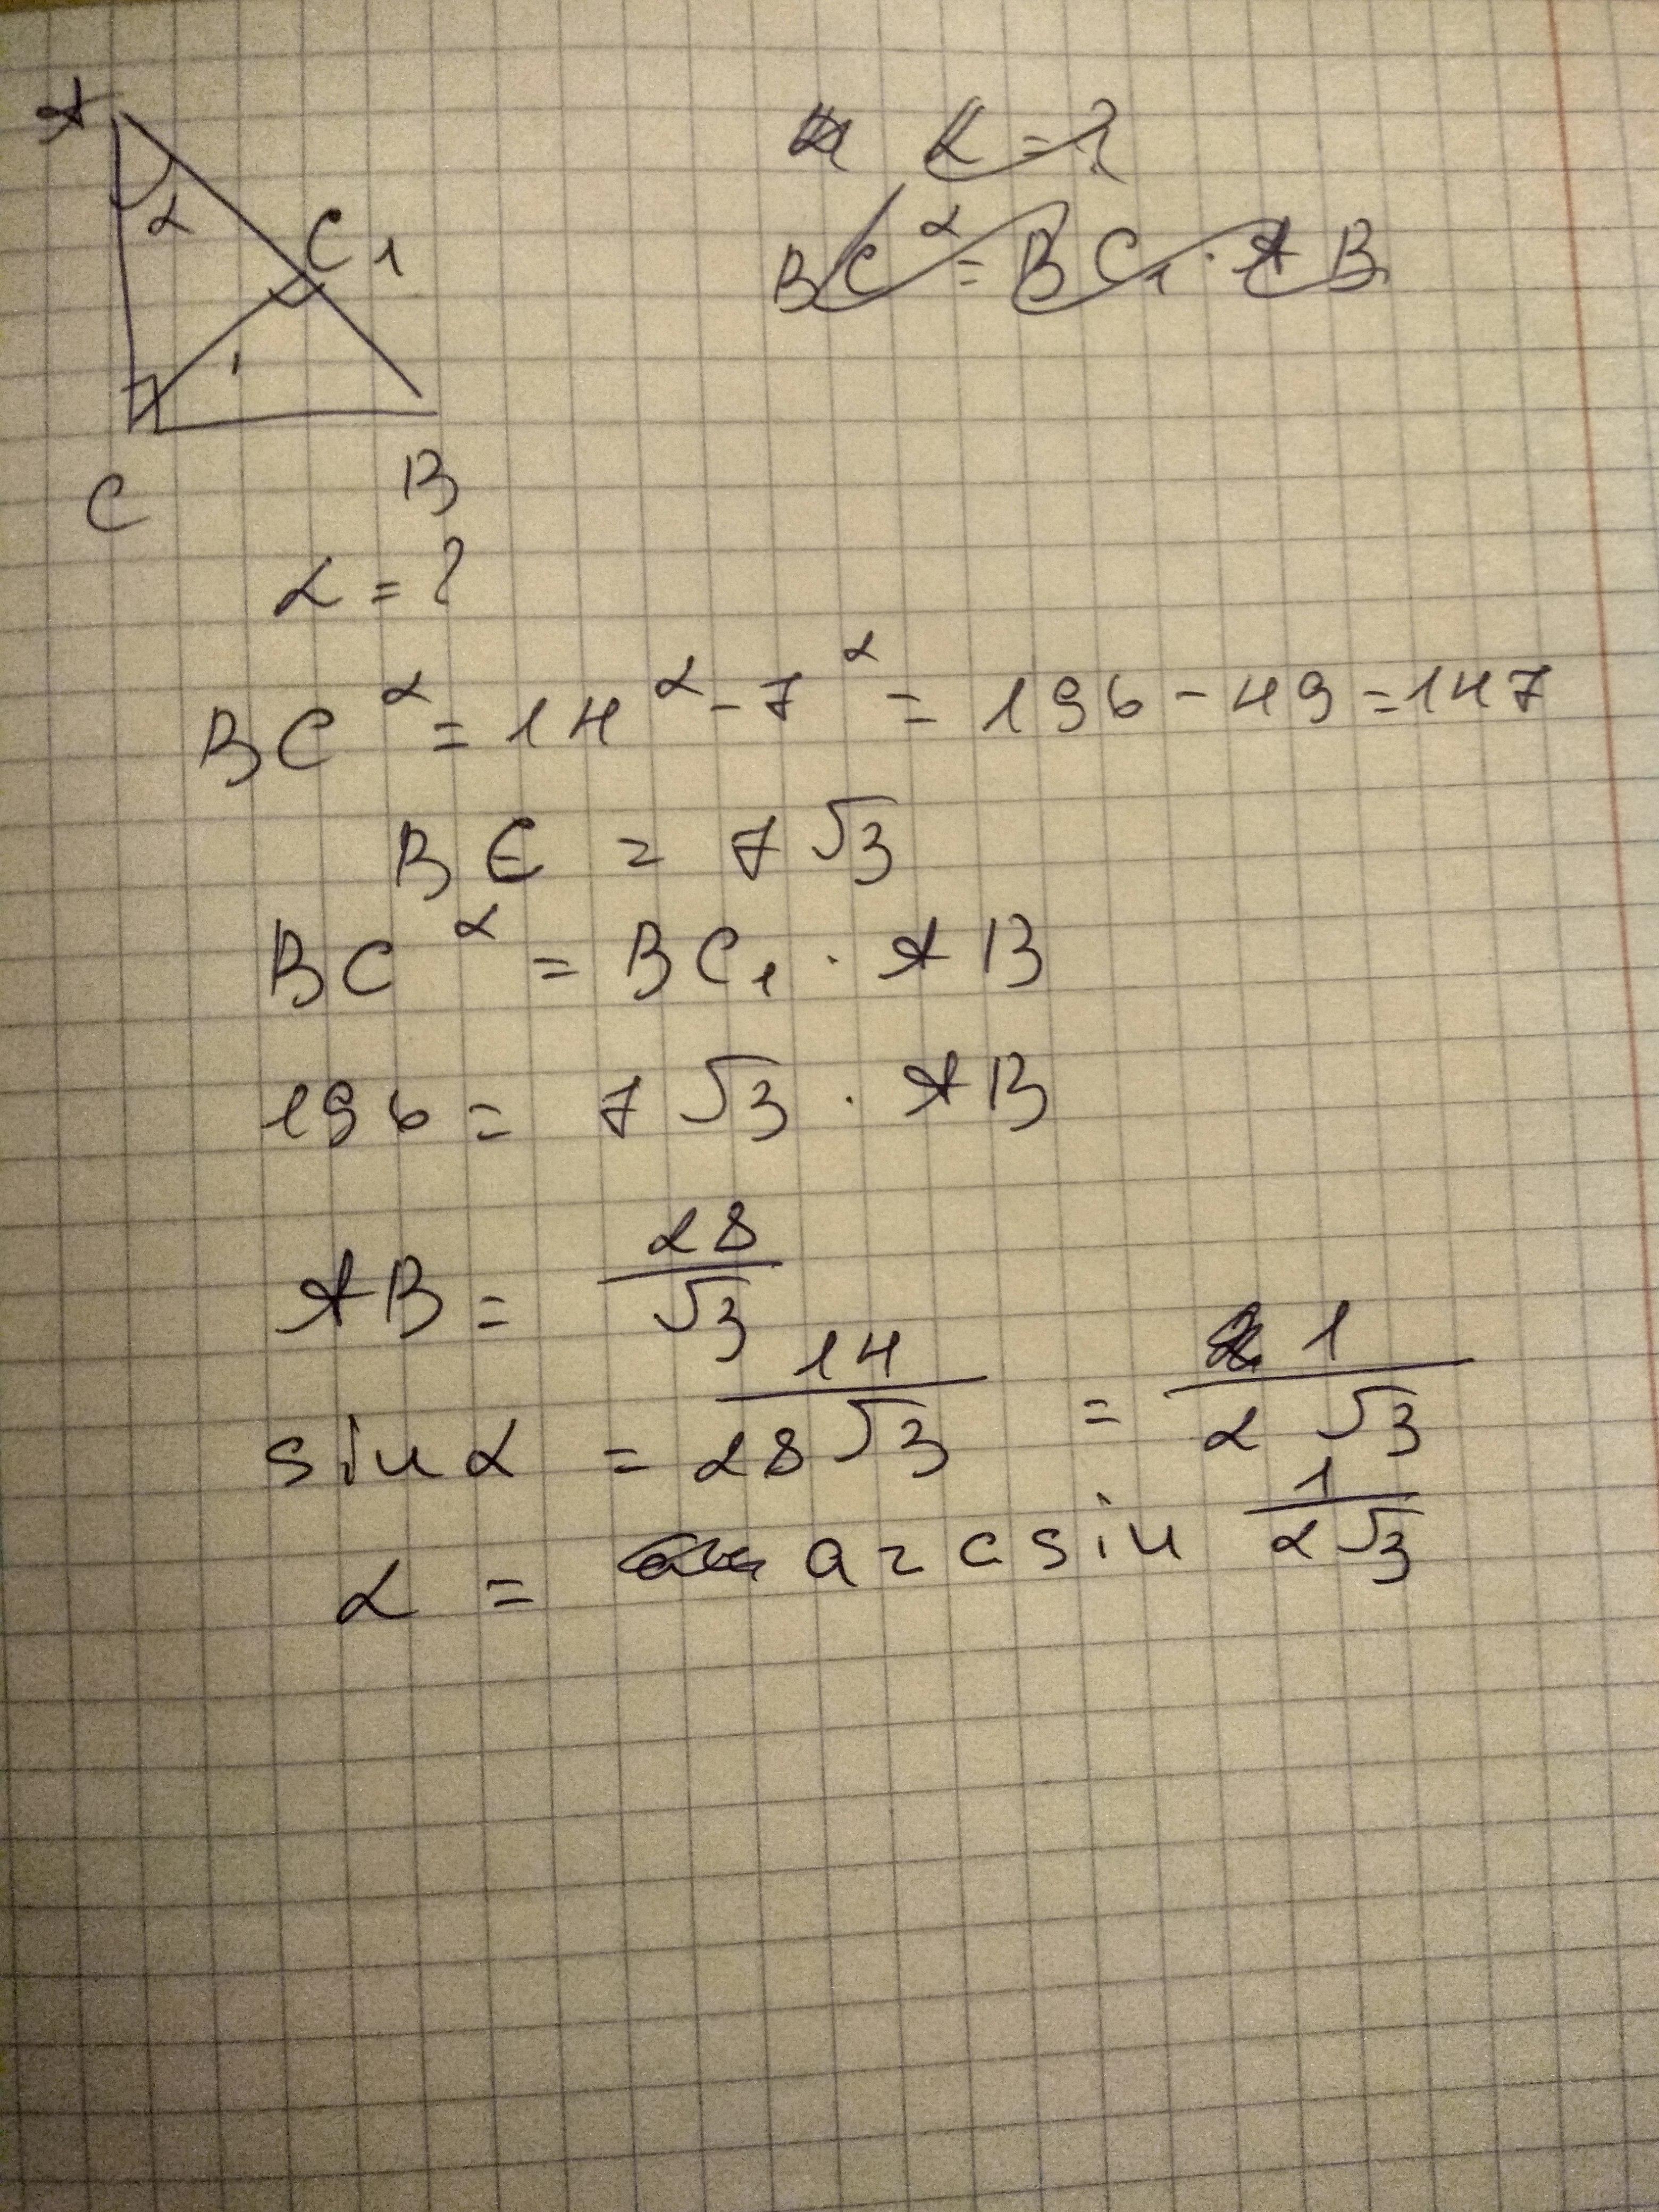 A
α
C₁
C
B
α = ?
BC² = BC₁ · AB
α = ?
BC² = 14² - 7² = 196 - 49 = 147
BC = 7√3
BC² = BC₁ · AB
196 = 7√3 · AB
AB = 28/√3
sin α = 14/28√3 = 1/2√3
α = arcsin 1/2√3